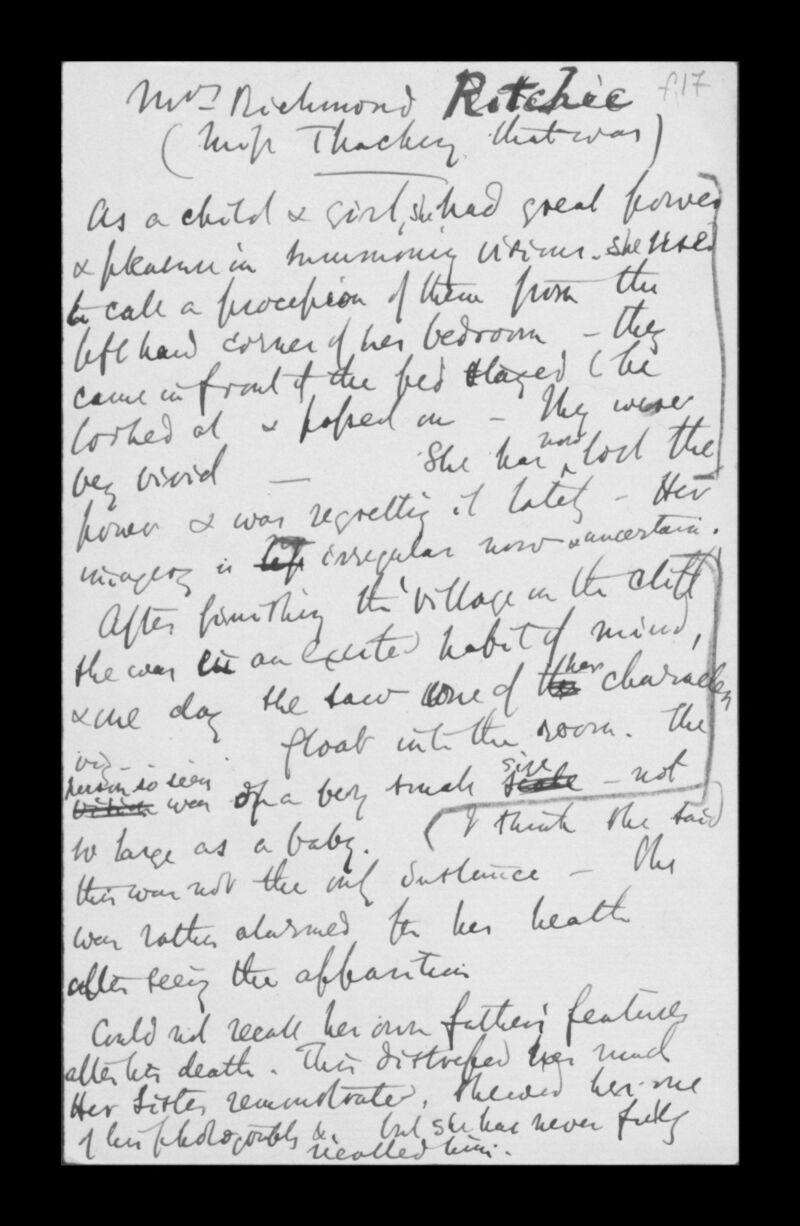 Mrs Richmond Ritchie f.17
(Miss Thackery that was)
As a child & girl, she had great power
& pleasure in summoning visions. She used
to call a procession of them from the
left hand corner of her bedroom – they
came in front of the bed stayed (be
looked at & passed on – They were
very vivid — She has now lost the
power & was regretting it lately – Her
imagery is irregular now & uncertain.
After finishing the 'Village on the Cliff
she was in an excited habit of mind,
& one day she saw one of her characters
viz – . . . float into the room. The
person so seen was of a very small size – not
so large as a baby. (I think she said
this was not the only instance – She
was rather alarmed for her health
after seeing the apparition
Could not recall her own father's features
after his death. This distressed her much
Her sister remonstrated, shewed her one
of his photographs &c but she has never fully
recalled him.